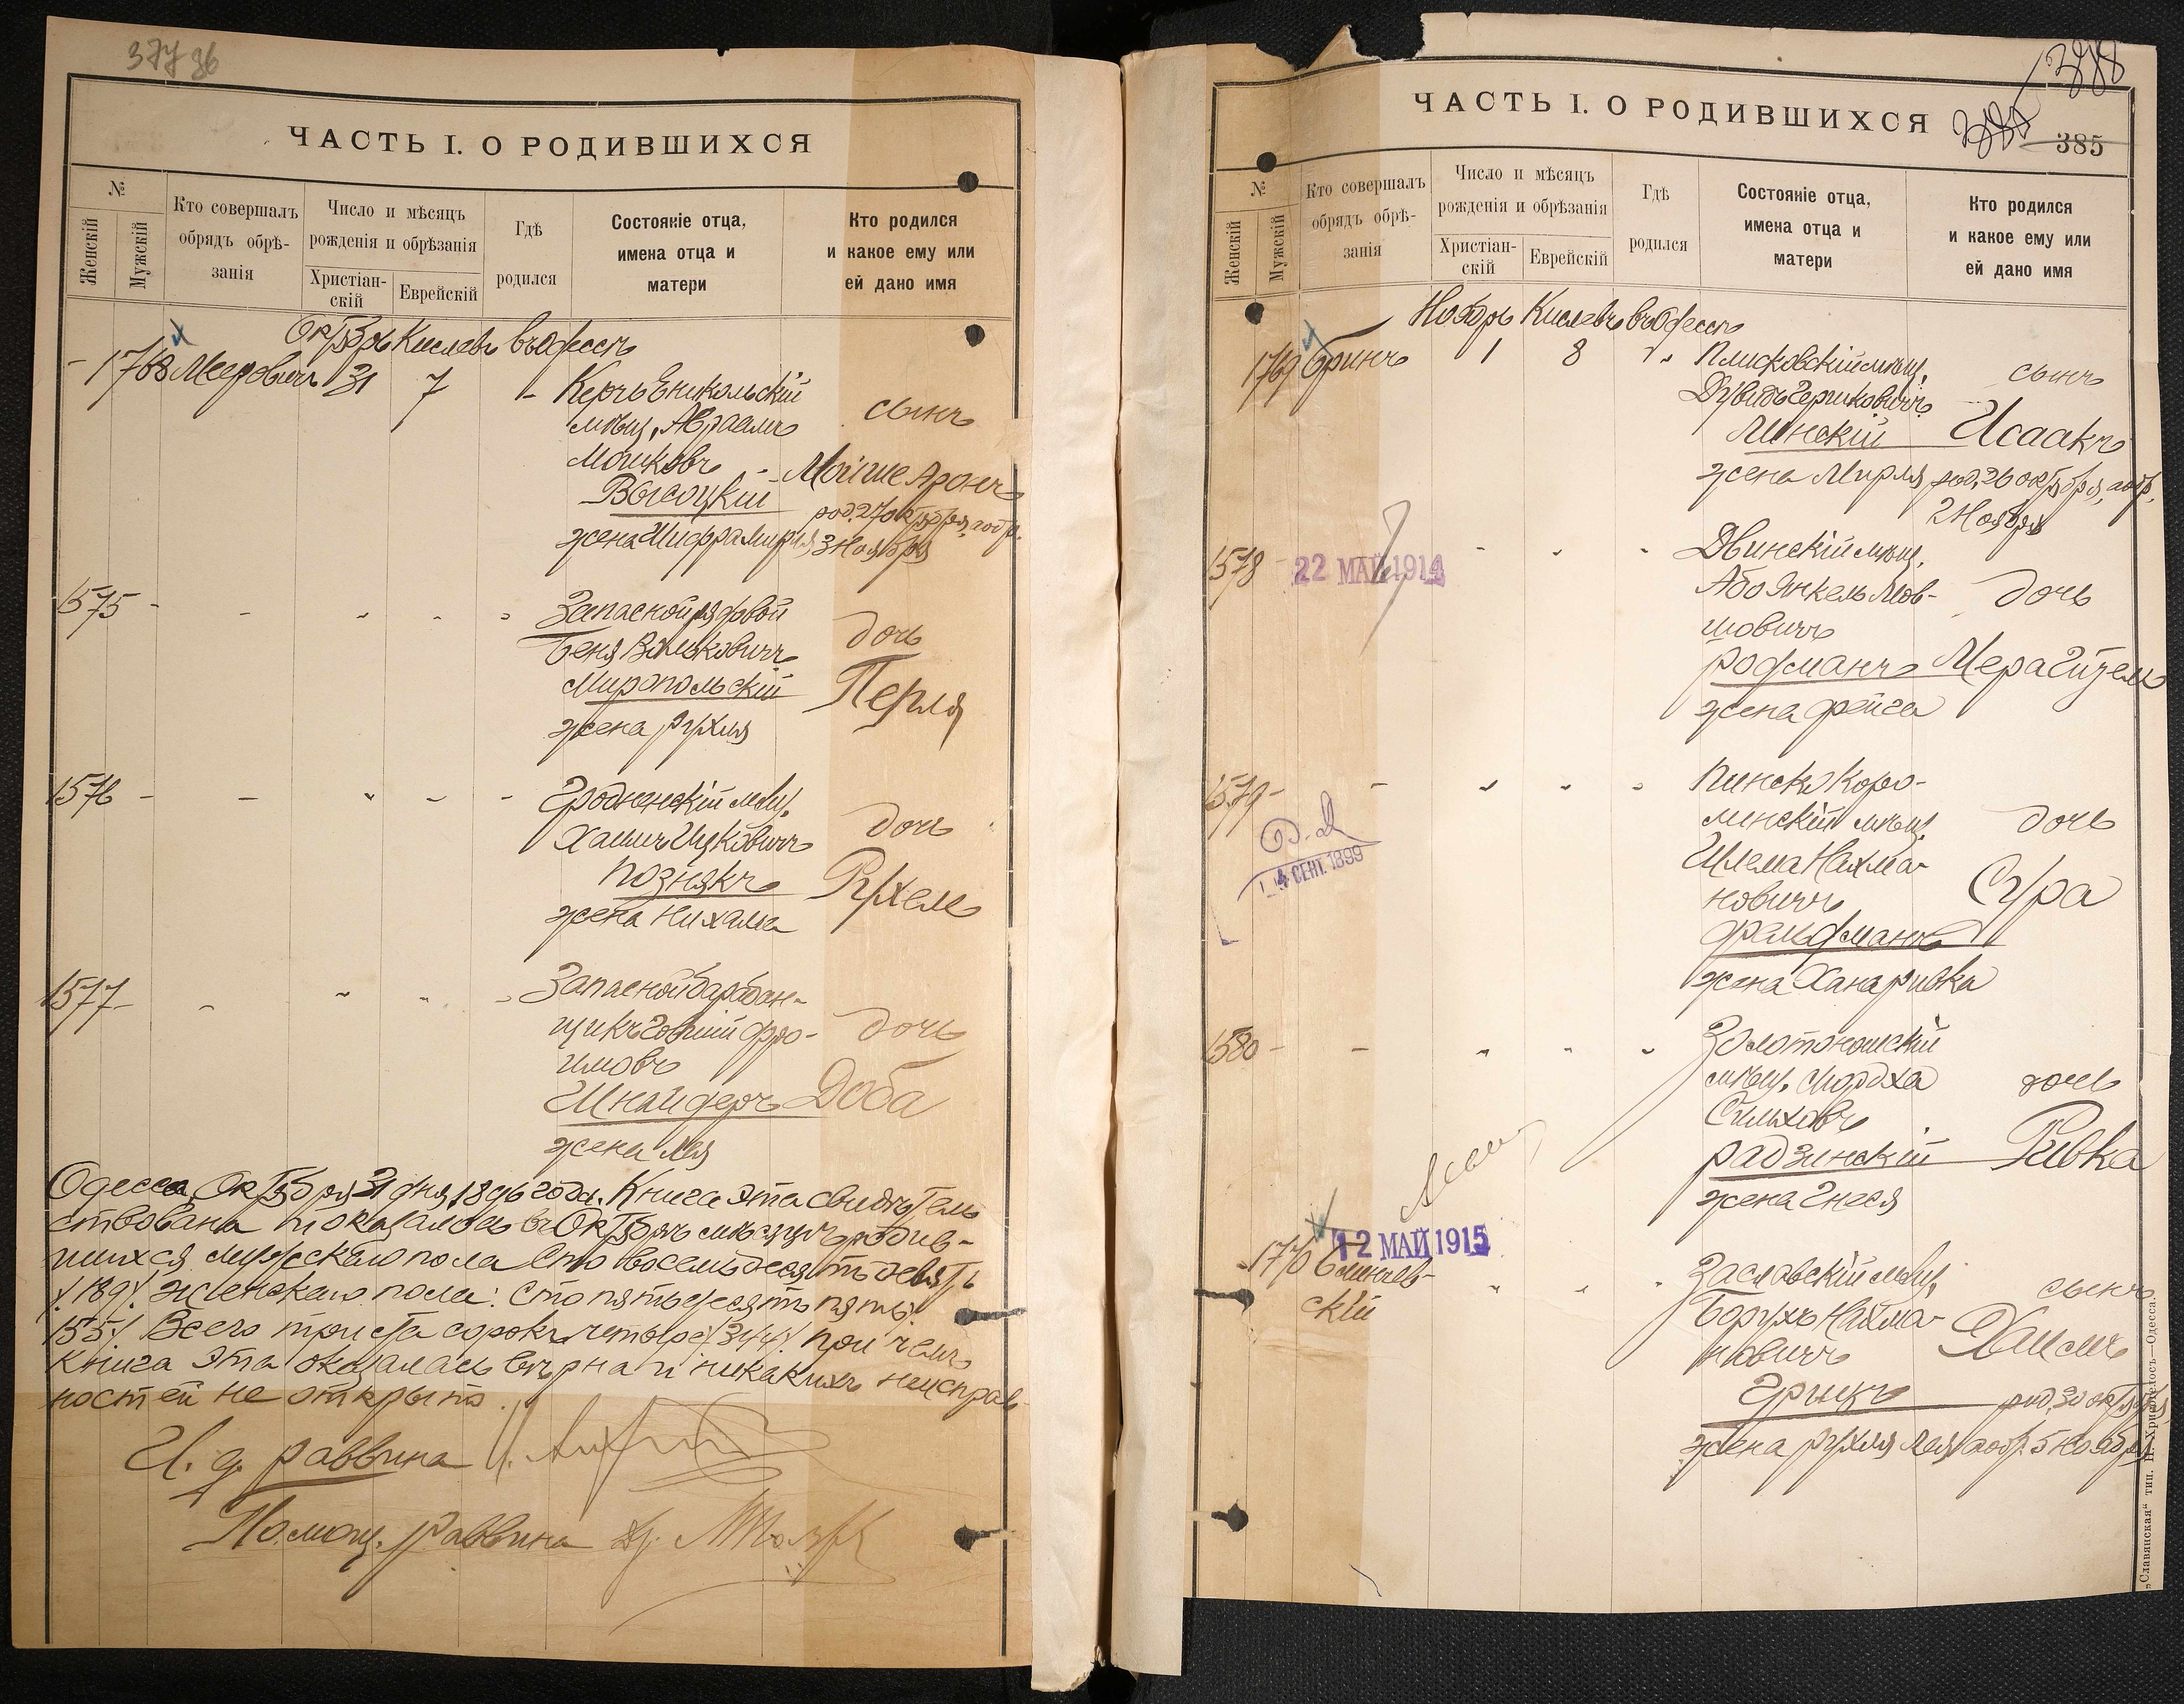 377 96
ЧАСТЬ I. О РОДИВШИХСЯ
№
Женскій
Мужскій
Кто совершалъ
обрядъ обрѣ-
занія
Число и мѣсяцъ
рожденія и обрѣзанія
Христіан-
скій
Еврейскій
Гдѣ
родился
Состояніе отца,
имена отца и
матери
Кто родился
и какое ему или
ей дано имя
Октябрь Кислевъ въ Одессѣ
1768 Мееровичъ 31 7
Керчь Еникольскій
мѣщ. Авраамъ
Мошковъ
Высоцкій
жена Шифра Мирля
сынъ
Мойше Аронъ
род. 27 октября, а обр.
3 Ноября
1575
Запасной рядовой
Беня Вольковичъ
Миропольскій
жена Рухля
дочь
Перля
1576
Гродненскій мѣщ.
Хаимъ Ицковичъ
Познякъ
жена Нихама
дочь
Рухель
1577
Запасной барабан-
щикъ Говшій Фро-
имовъ
Шнайдеръ
жена Лея
дочь
Доба
Одесса, Октября 31 дня 1896 года. Книга эта свидѣтель
ствована и оказалось въ Октябрѣ мѣсяцѣ родив-
шихся мужскаго пола сто восемьдесятъ девять
/189/. женскаго пола: сто пятьдесятъ пять
155/. Всего триста сорокъ четыре /344/. при чемъ
книга эта оказалась вѣрна и никакихъ неисправ
ностей не открыто.
И. д. раввина
Помощ. Раввина
388
385
ЧАСТЬ I. О РОДИВШИХСЯ
№
Женскій
Мужскій
Кто совершалъ
обрядъ обрѣ-
занія
Число и мѣсяцъ
рожденія и обрѣзанія
Христіан-
скій
Еврейскій
Гдѣ
родился
Состояніе отца,
имена отца и
матери
Кто родился
и какое ему или
ей дано имя
Ноябрь Кислевъ въ Одессѣ
1769 Бринъ 1 8
Плисковскій мѣщ.
Дувидъ Гершковичъ
Линскій
жена Мирля
сынъ
Исаакъ
род. 26 октября, а обр.
2 Ноября
1578
22 МАЙ 1914
Двинскій мѣщ.
Або Янкель Мов-
шовичъ
Рофманъ
жена Фейга
дочь
Мера Гитель
1579
4 СЕНТ. 1899
Пинско Каро-
линскій мѣщ.
Шлема Нахма-
новичъ
Фельдманъ
жена Хана Ривка
дочь
Сура
1580
Золотоношскій
мѣщ. Мордха
Радзинскій
жена Гнеся
дочь
Ривка
12 МАЙ 1915
1770
скій
Заславскій мѣщ.
Борухъ Нахма-
новичъ
Грицъ
жена Рухля Лея
сынъ
Хаимъ
род. 30 октября
а обр. 5 Ноября
„Славянская“ тип. Н. Хрисогелосъ—Одесса.